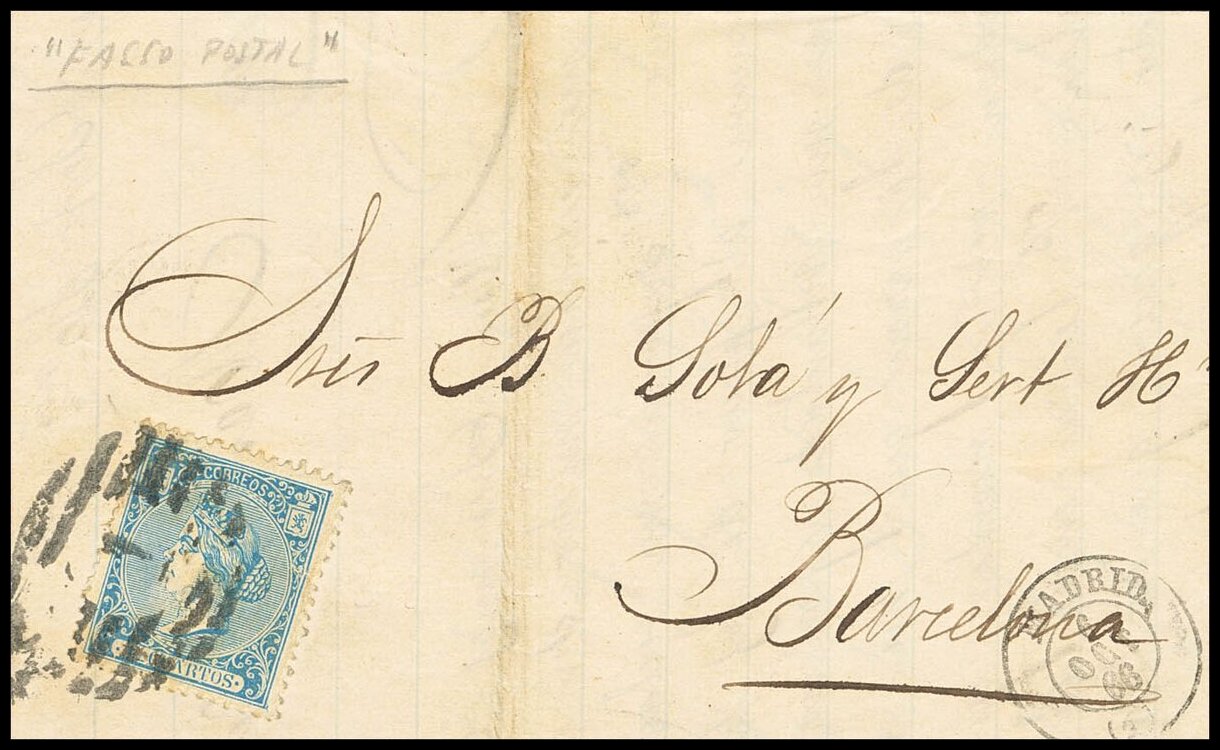 "FALSO POSTAL"
Sres B Solá y Sert H
Barcelona
CORREOS
CUARTOS.
MADRID
OCT
66